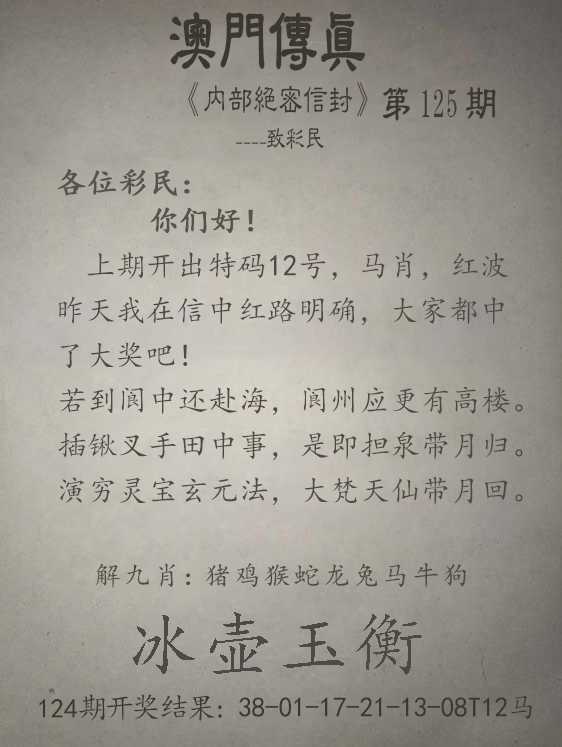 澳門傳眞
《内部絕密信封》第125期
----致彩民
各位彩民：
你们好！
上期开出特码12号，马肖，红波
昨天我在信中红路明确，大家都中
了大奖吧！
若到阆中还赴海，阆州应更有高楼。
插锹叉手田中事，是即担泉带月归。
演穷灵宝玄元法，大梵天仙带月回。
解九肖：猪鸡猴蛇龙兔马牛狗
冰壶玉衡
124期开奖结果：38-01-17-21-13-08T12马